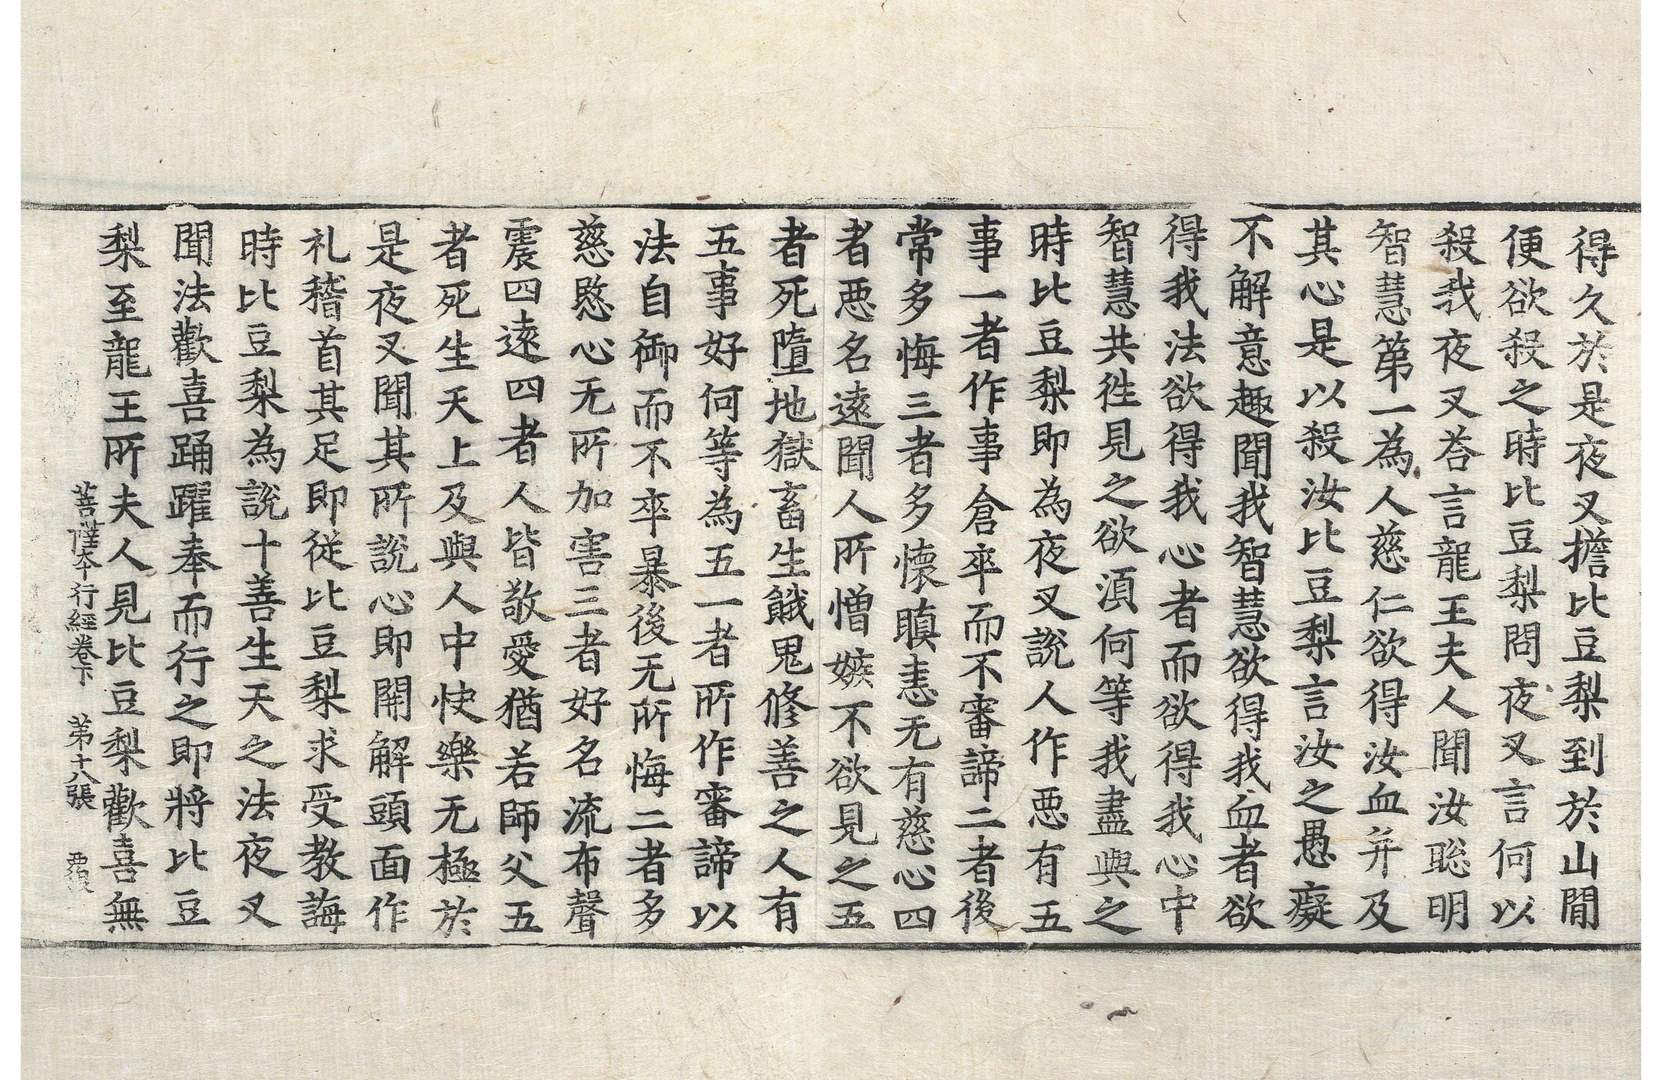 得久於是夜叉擔比豆梨到於山間
便欲殺之時比豆梨問夜叉言何以
殺我夜叉荅言龍王夫人聞汝聡明
智慧第一為人慈仁欲得汝血并及
其心是以殺汝比豆梨言汝之愚癡
不解意趣聞我智慧欲得我血者欲
得我法欲得我心者而欲得我心中
智慧共徃見之欲湏何等我盡與之
時比豆梨即為夜叉說人作悪有五
事一者作事倉卒而不審諦二者後
常多悔三者多懷瞋恚无有慈心四
者悪名遠聞人所憎嫉不欲見之五
者死墮地獄畜生餓鬼修善之人有
五事好何等為五一者所作審諦以
法自御而不卒暴後无所悔二者多
慈愍心无所加害三者好名流布聲
震四遠四者人皆敬愛猶若師父五
者死生天上及與人中快樂无極於
是夜叉聞其所說心即開解頭面作
礼稽首其足即從比豆梨求受教誨
時比豆梨為說十善生天之法夜叉
聞法歡喜踊躍奉而行之即將比豆
梨至龍王所夫人見比豆梨歡喜無
菩薩本行經卷下 第十八張